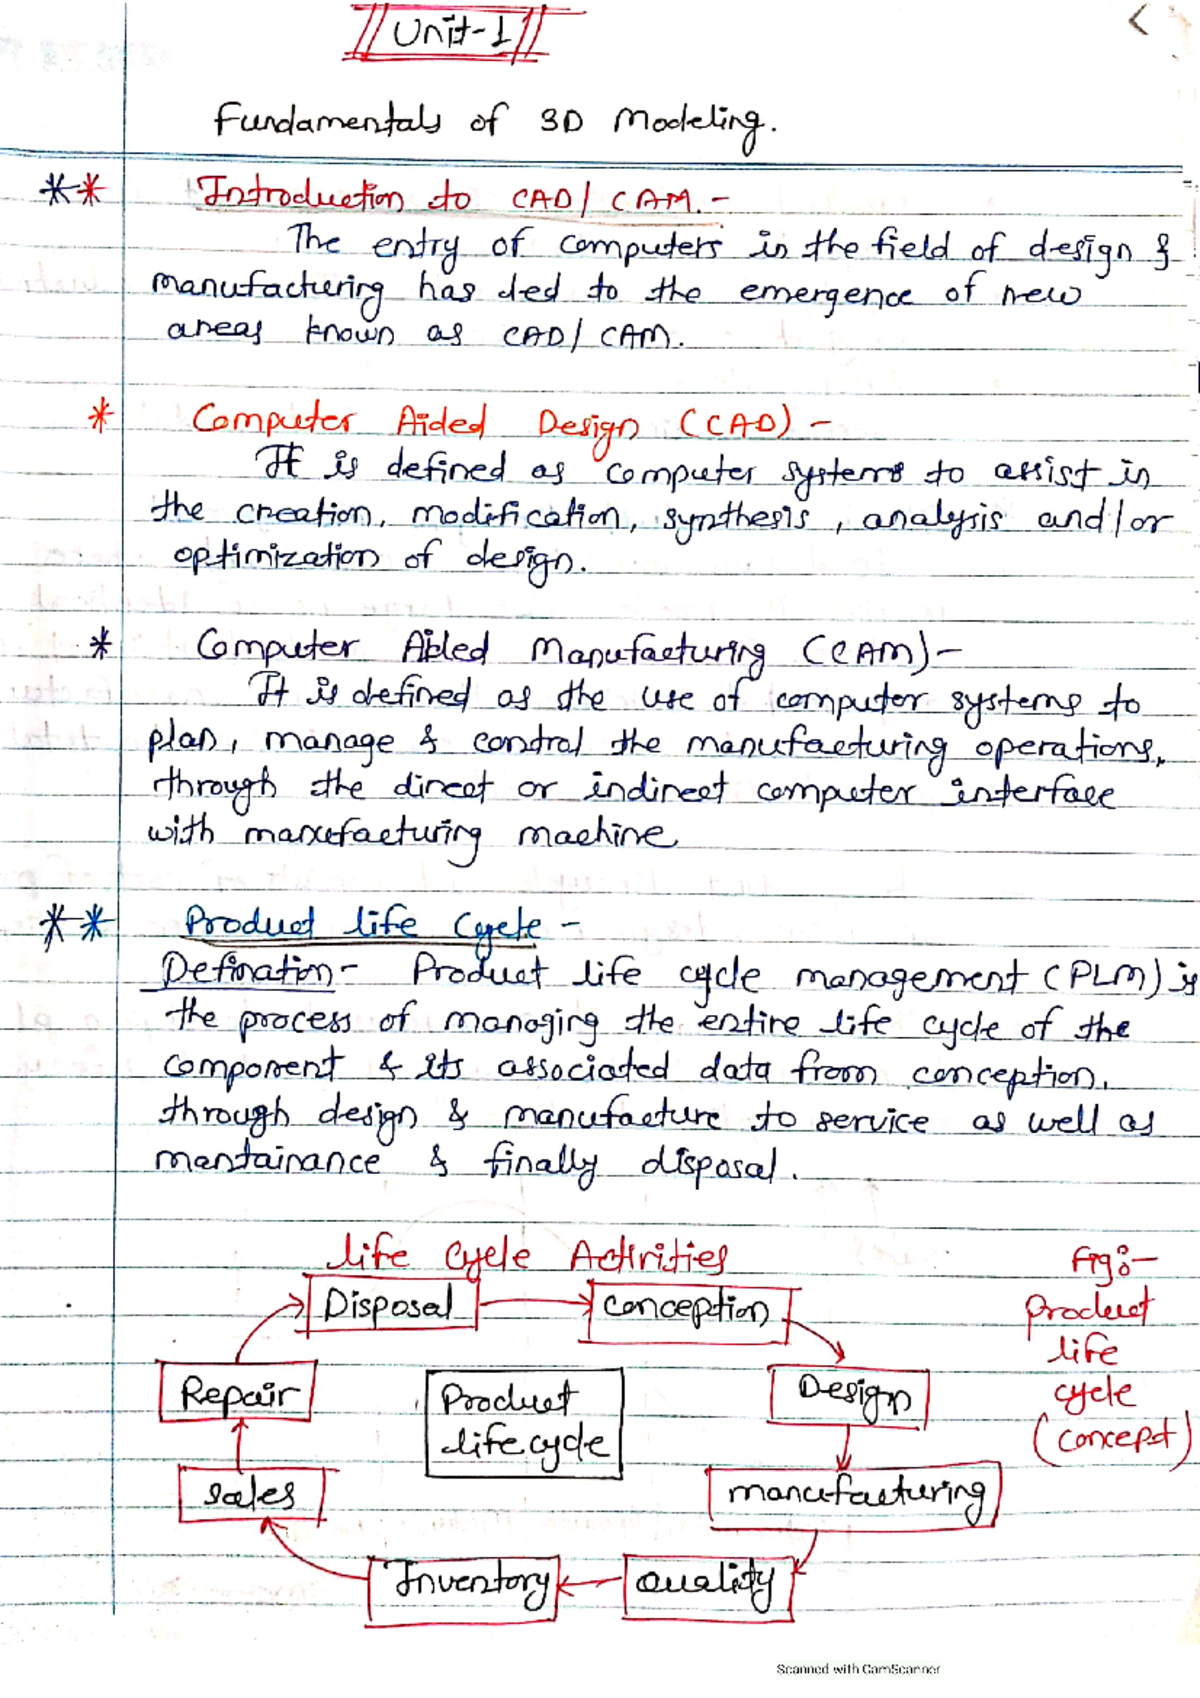 Unit-1
Fundamentals of 3D Modeling.
** Introduction to CAD/CAM.-
The entry of computers in the field of design &
manufacturing has led to the emergence of new
areas known as CAD/CAM.
* Computer Aided Design (CAD) -
It is defined as computer systems to assist in
the creation, modification, synthesis, analysis and/or
optimization of design.
* Computer Aided Manufacturing (CAM)-
It is defined as the use of computer systems to
plan, manage & control the manufacturing operations,
through the direct or indirect computer interface
with manufacturing machine
** Product life Cycle -
Defination- Product life cycle management (PLM) is
the process of managing the entire life cycle of the
component & its associated data from conception,
through design & manufacture to service as well as
mantainance & finally disposal.
life Cycle Activities
Fig:-
Product
life
cycle
(concept)
Disposal
conception
Repair
Product
life cycle
Design
sales
manufacturing
Inventory
Quality
Scanned with CamScanner